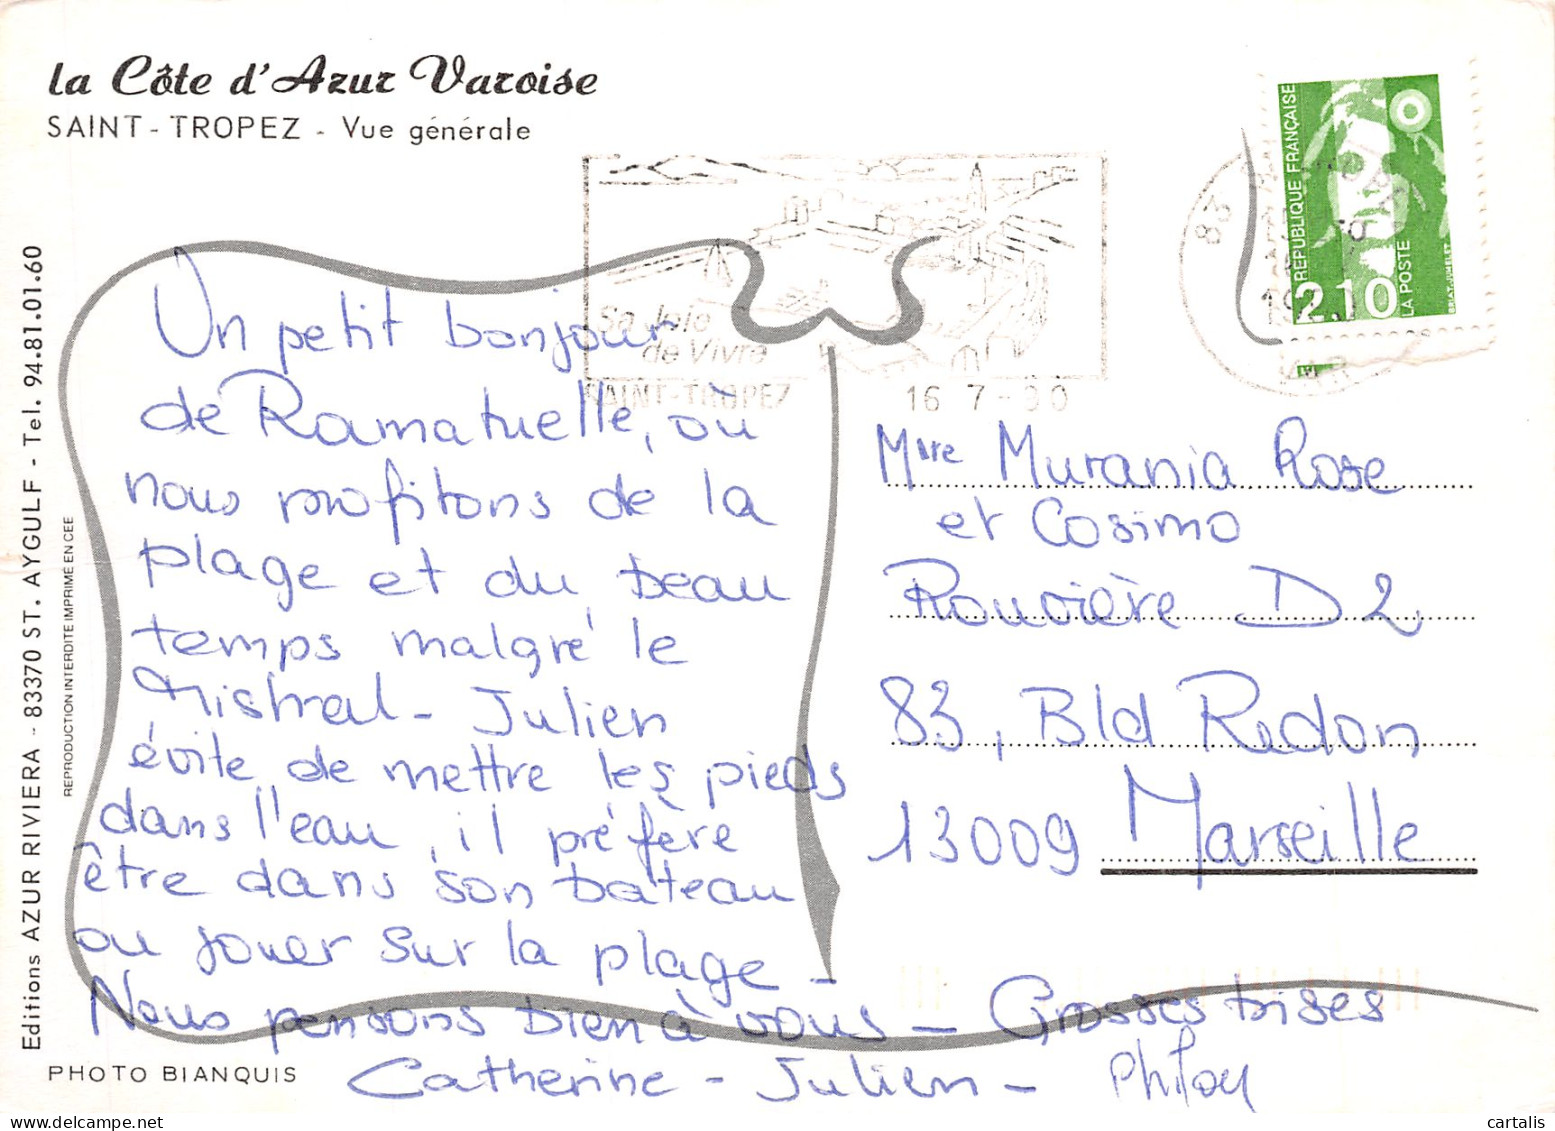 la Côte d'Azur Varoise
SAINT-TROPEZ - Vue générale
RÉPUBLIQUE FRANÇAISE
2,10
LA POSTE
BRIAT-JUMELET
83
VAR
Sa Joie
de Vivre
SAINT-TROPEZ
16 7-90
Editions AZUR RIVIERA - 83370 ST. AYGULF - Tel. 94.81.01.60
REPRODUCTION INTERDITE IMPRIME EN CEE
Un petit bonjour
de Ramatuelle, où
nous profitons de la
plage et du beau
temps malgré le
Mistral - Julien
évite de mettre les pieds
dans l'eau, il préfère
être dans son bateau
ou jouer sur la plage -
Nous pensons bien à vous - Grosses bises
Catherine - Julien -
Murania Rose
et Cosimo
Rouvière D2
83, Bld Redon
13009 Marseille
PHOTO BIANQUIS
cartalis